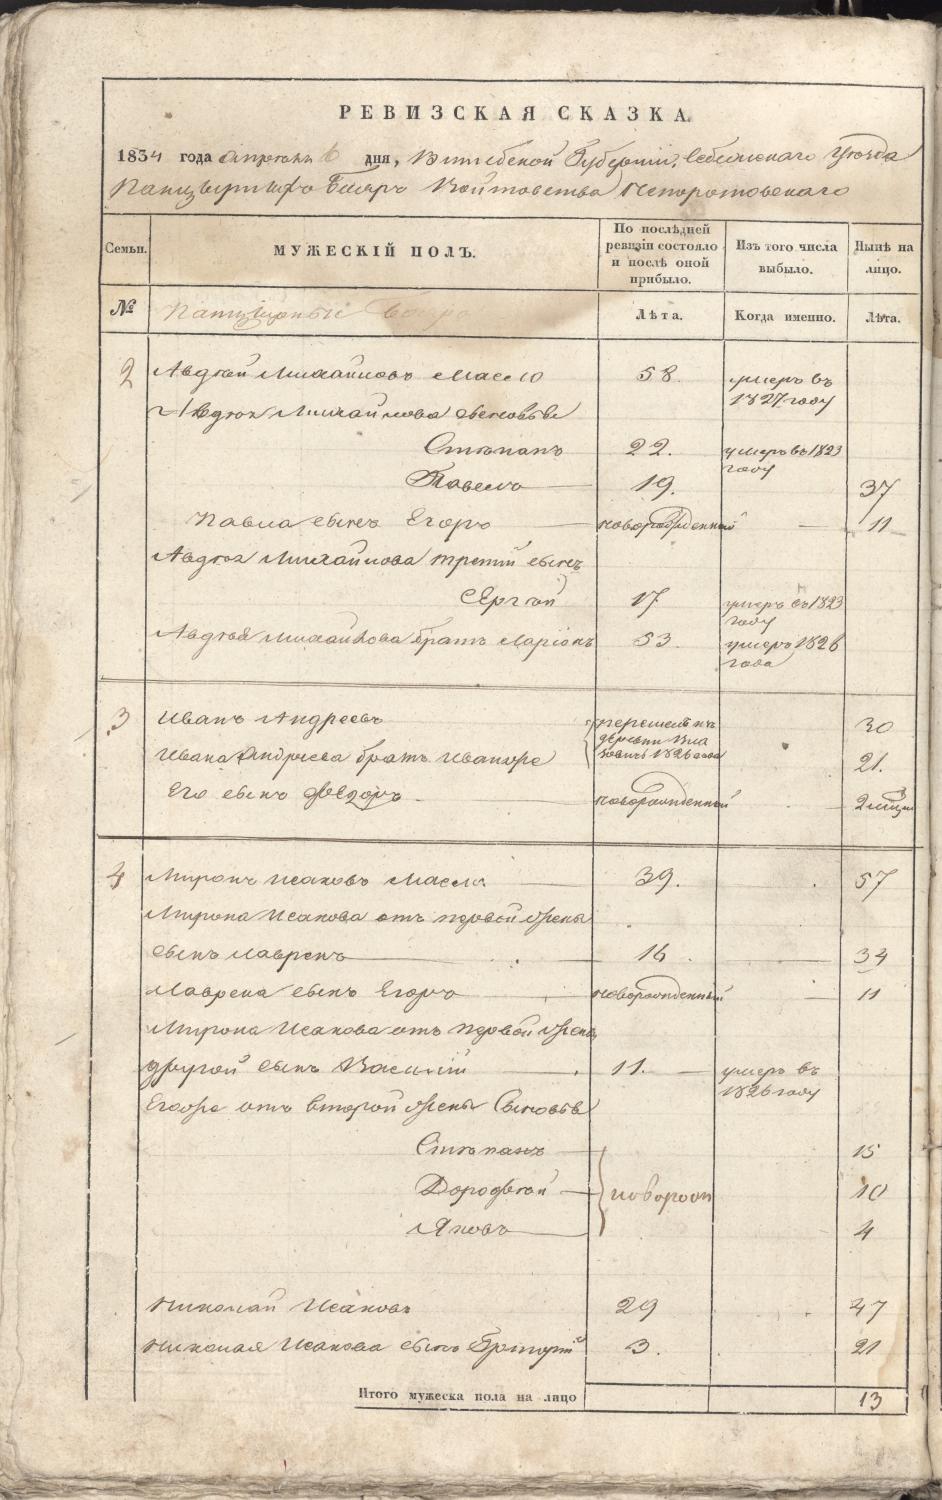 РЕВИЗСКАЯ СКАЗКА.
1834 года апреля 6 дня, Витебской Губернии, Себежского Уезда
Панцырныхъ Бояръ Войтовства Непоротовскаго
Семьи. МУЖЕСКІЙ ПОЛЪ. По послѣдней ревизіи состояло и послѣ оной прибыло. Изъ того числа выбыло. Нынѣ на лицо.
№ Панцырные Бояре Лѣта. Когда именно. Лѣта.
2 Авдѣй Михайловъ Масло 58. умеръ въ 1827 году
Авдѣя Михайлова сыновья
Степанъ 22. умеръ въ 1823 году
Павелъ 19. 37
Павла сынъ Егоръ новорожденный 11
Авдѣя Михайлова третій сынъ
Сергѣй 17 умеръ въ 1823 году
Авдѣя Михайлова братъ Ларіонъ 53. умеръ 1826 года
3 Иванъ Андреевъ перешелъ изъ деревни 1826 года 30
Ивана Андреева братъ 21.
Его сынъ Ѳедоръ новорожденный 2
4 Миронъ Исаковъ Масло 39. 57
Мирона Исакова отъ первой жены
сынъ Лавренъ 16. 34
Лаврена сынъ Егоръ новорожденный 11
Мирона Исакова отъ первой жены
другой сынъ Василій 11. умеръ въ 1826 году
Егоже отъ второй жены Сыновья
Степанъ 15
Дорофей новорож 10
Яковъ 4
Николай Исаковъ 29 47
Николая Исакова сынъ Григорій 3. 21
Итого мужеска пола на лицо 13